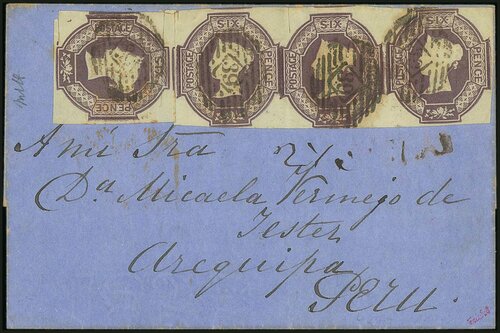 POSTAGE SIX PENCE
POSTAGE SIX
POSTAGE SIX
POSTAGE SIX
A mi Sra
Da. Micaela Vermejo de
Tester
Arequipa
Peru.